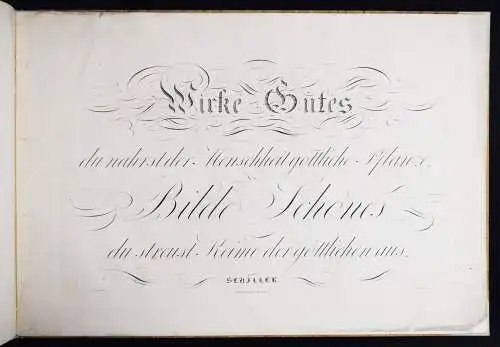 Wirke Gutes
du nährst der Menschheit göttliche Pflanze.
Bilde Schönes
du streust Keime der göttlichen aus.
SCHILLER.